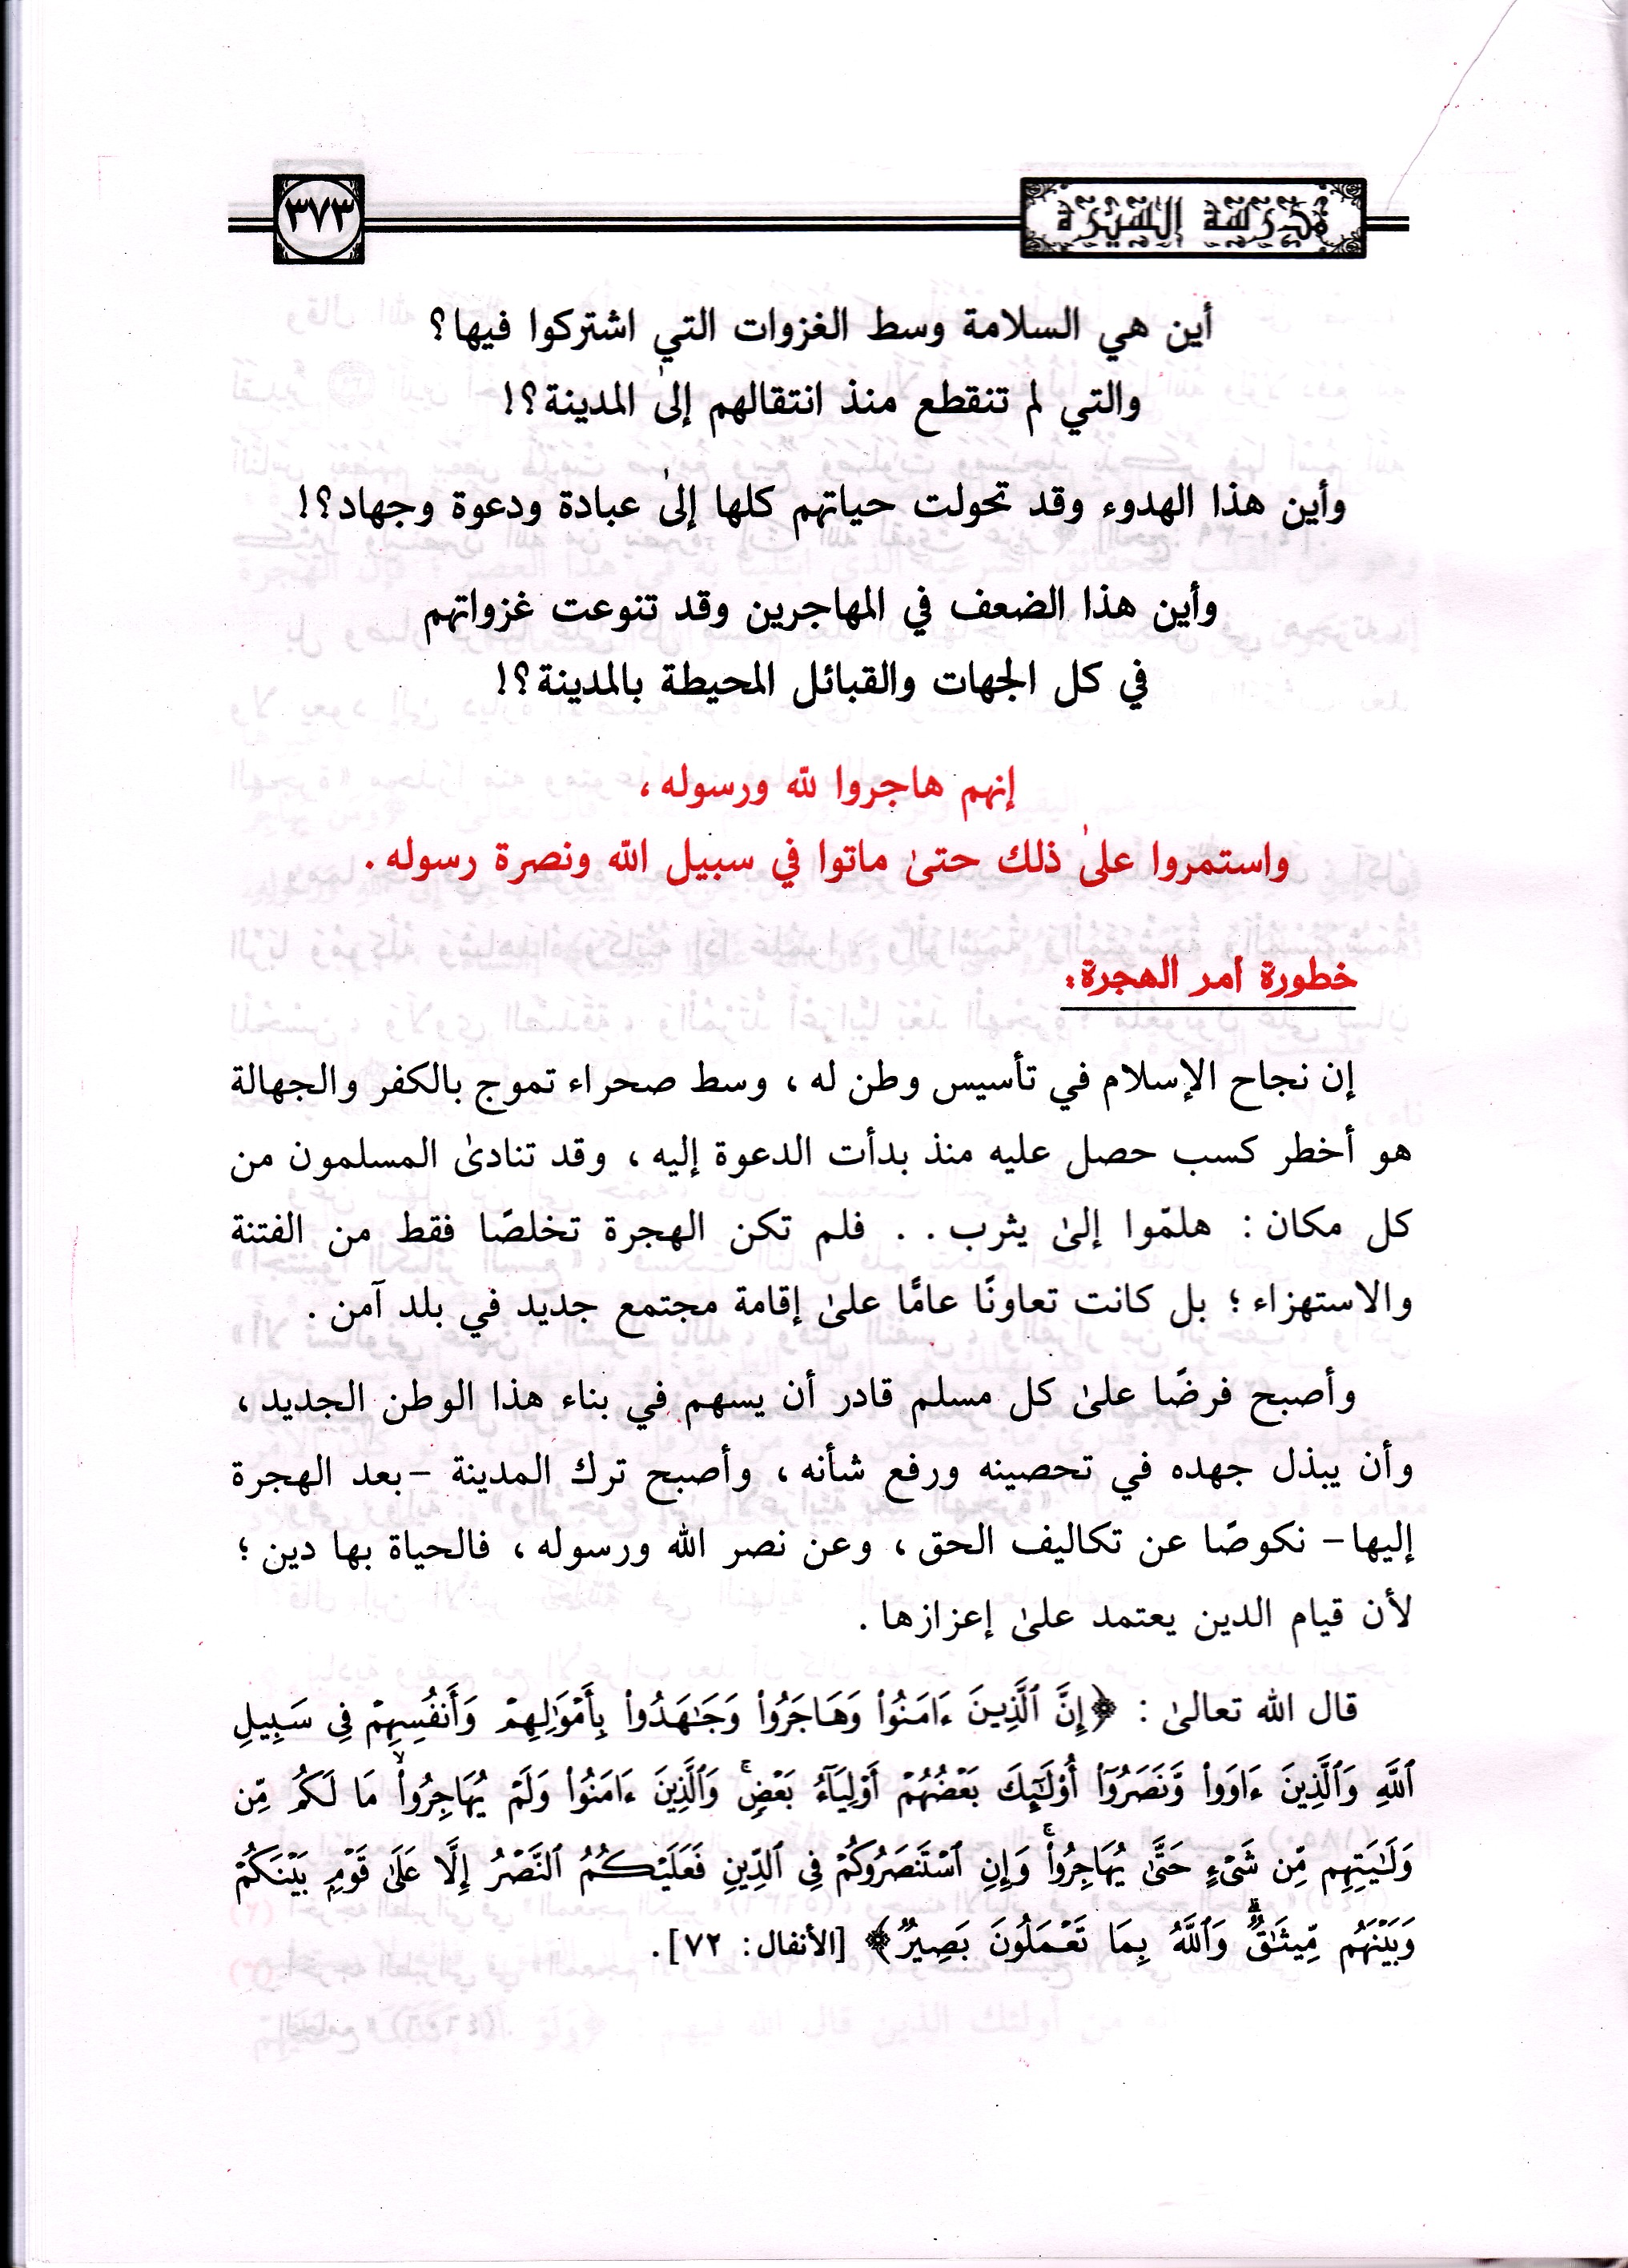 مدرسة السيرة
٣٧٣
أين هي السلامة وسط الغزوات التي اشتركوا فيها؟
والتي لم تنقطع منذ انتقالهم إلىٰ المدينة؟!
وأين هذا الهدوء وقد تحولت حياتهم كلها إلىٰ عبادة ودعوة وجهاد؟!
وأين هذا الضعف في المهاجرين وقد تنوعت غزواتهم
في كل الجهات والقبائل المحيطة بالمدينة؟!
إنهم هاجروا لله ورسوله،
واستمروا علىٰ ذلك حتىٰ ماتوا في سبيل الله ونصرة رسوله.
خطورة أمر الهجرة:
إن نجاح الإسلام في تأسيس وطن له، وسط صحراء تموج بالكفر والجهالة
هو أخطر كسب حصل عليه منذ بدأت الدعوة إليه، وقد تنادىٰ المسلمون من
كل مكان: هلمّوا إلىٰ يثرب.. فلم تكن الهجرة تخلصًا فقط من الفتنة
والاستهزاء؛ بل كانت تعاونًا عامًّا علىٰ إقامة مجتمع جديد في بلد آمن.
وأصبح فرضًا علىٰ كل مسلم قادر أن يسهم في بناء هذا الوطن الجديد،
وأن يبذل جهده في تحصينه ورفع شأنه، وأصبح ترك المدينة -بعد الهجرة
إليها- نكوصًا عن تكاليف الحق، وعن نصر الله ورسوله، فالحياة بها دين؛
لأن قيام الدين يعتمد علىٰ إعزازها.
قال الله تعالىٰ: ﴿إِنَّ ٱلَّذِينَ ءَامَنُوا۟ وَهَاجَرُوا۟ وَجَـٰهَدُوا۟ بِأَمْوَٰلِهِمْ وَأَنفُسِهِمْ فِى سَبِيلِ
ٱللَّهِ وَٱلَّذِينَ ءَاوَوا۟ وَّنَصَرُوٓا۟ أُو۟لَـٰٓئِكَ بَعْضُهُمْ أَوْلِيَآءُ بَعْضٍۢ ۚ وَٱلَّذِينَ ءَامَنُوا۟ وَلَمْ يُهَاجِرُوا۟ مَا لَكُم مِّن
وَلَـٰيَتِهِم مِّن شَىْءٍ حَتَّىٰ يُهَاجِرُوا۟ ۚ وَإِنِ ٱسْتَنصَرُوكُمْ فِى ٱلدِّينِ فَعَلَيْكُمُ ٱلنَّصْرُ إِلَّا عَلَىٰ قَوْمٍۭ بَيْنَكُمْ
وَبَيْنَهُم مِّيثَـٰقٌۭ ۗ وَٱللَّهُ بِمَا تَعْمَلُونَ بَصِيرٌۭ﴾ [الأنفال: ٧٢].